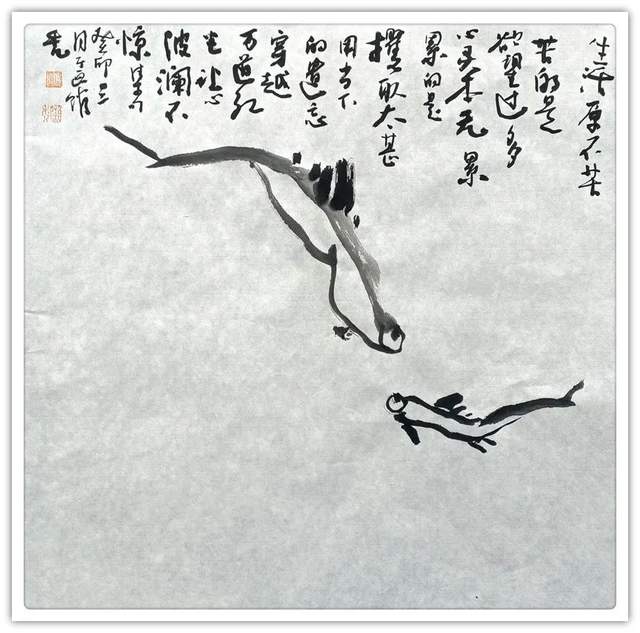 生活原不苦
苦的是
欲望过多
心灵本无累
累的是
攫取太甚
用当下
的遗忘
穿越
万道红
尘让心
波澜不
惊
癸卯三
月